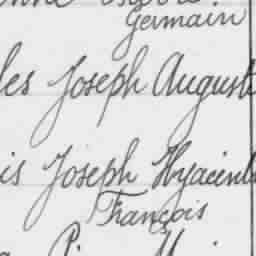 Germain
les Joseph August
is Joseph Hyacint
François